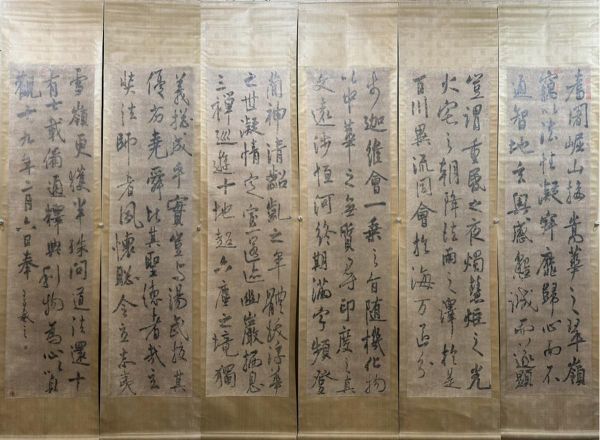 耆闍崛山接嵩華之翠嶺
竊以法性凝寂靡歸心而不
通智地玄奧感懇誠而遂顯
豈謂重昏之夜燭慧炬之光
火宅之朝降法雨之澤於是
百川異流同會於海萬區分
步迦維會一乘之旨隨機化物
以中華之無質尋印度之真
文遠涉恒河終期滿字頻登
簡神清齠齔之年體拔浮華
之世凝情定室匿迹幽巖棲息
三禪巡遊十地超六塵之境獨
義總成乎實豈與湯武校其
優劣堯舜比其聖德者哉玄
奘法師者夙懷聰令立志夷
雪嶺更獲半珠問道法還十
有七載備通釋典利物為心以貞
觀十九年二月六日奉